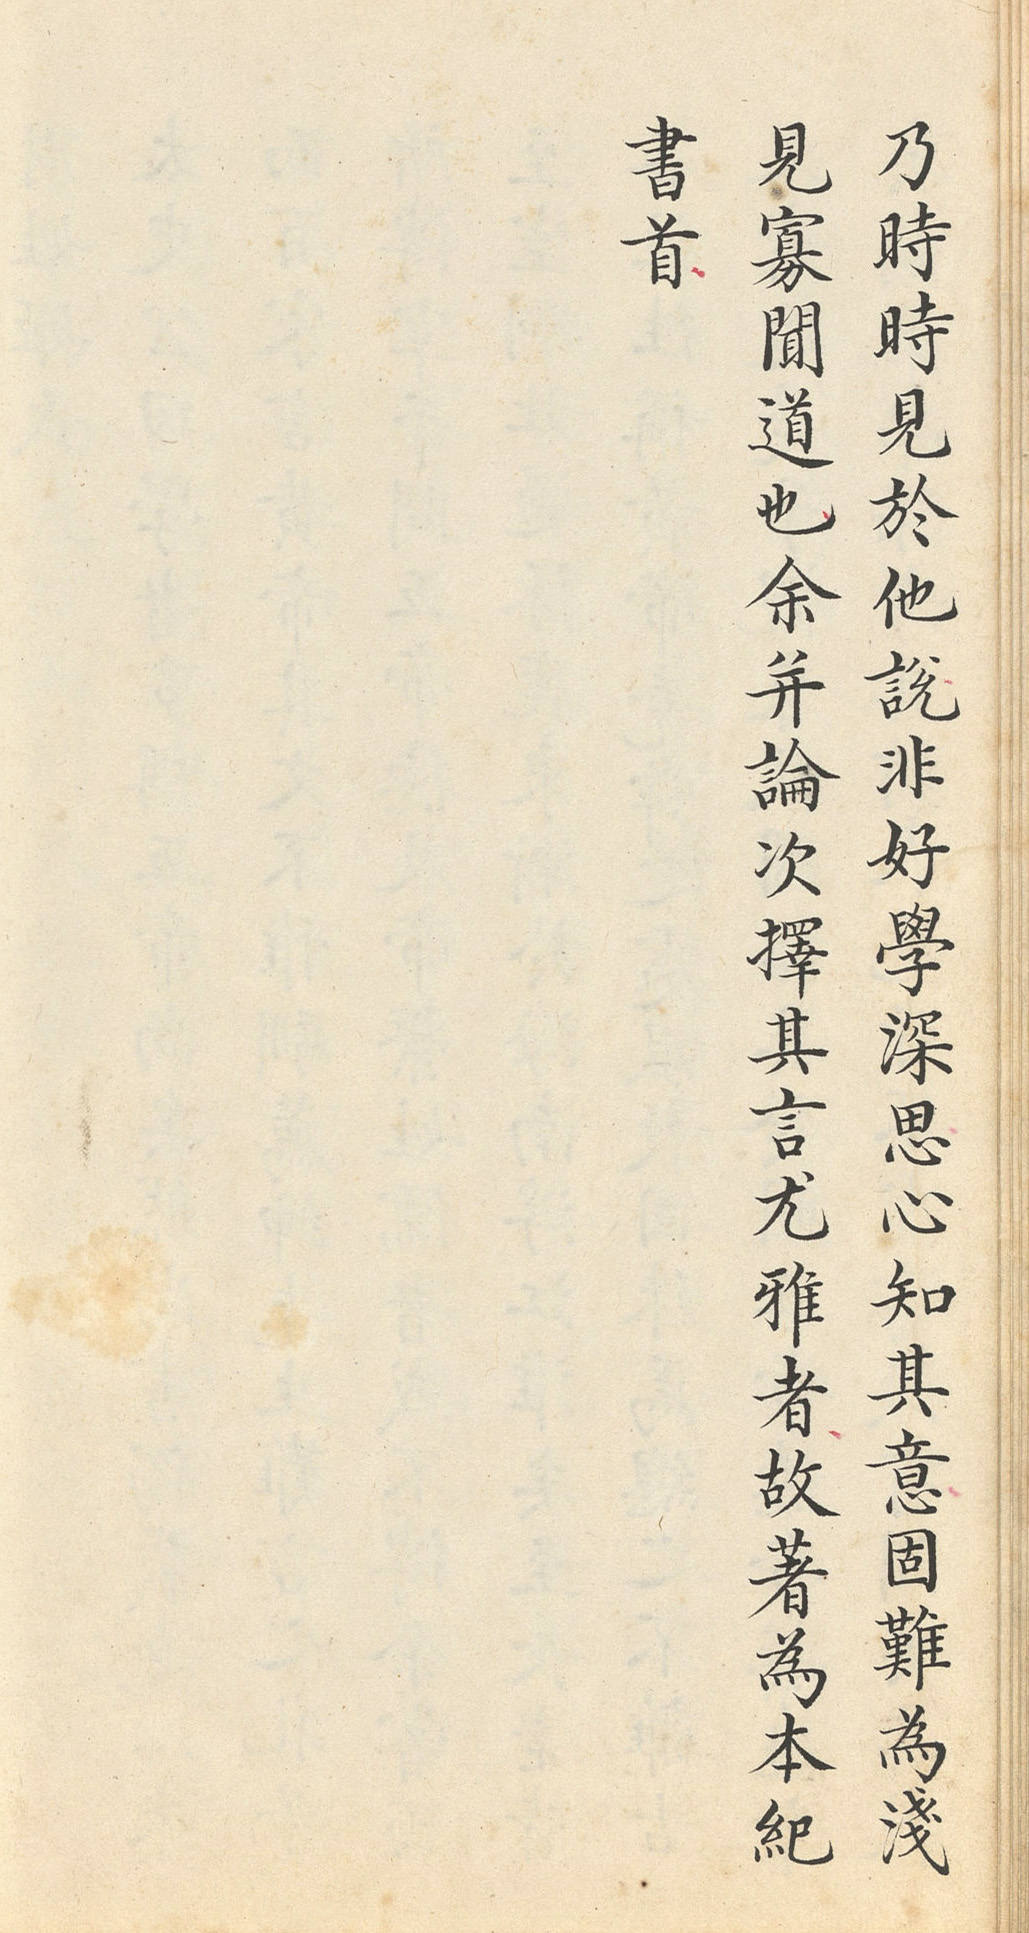 乃時時見於他說非好學深思心知其意固難為淺
見寡聞道也余并論次擇其言尤雅者故著為本紀
書首